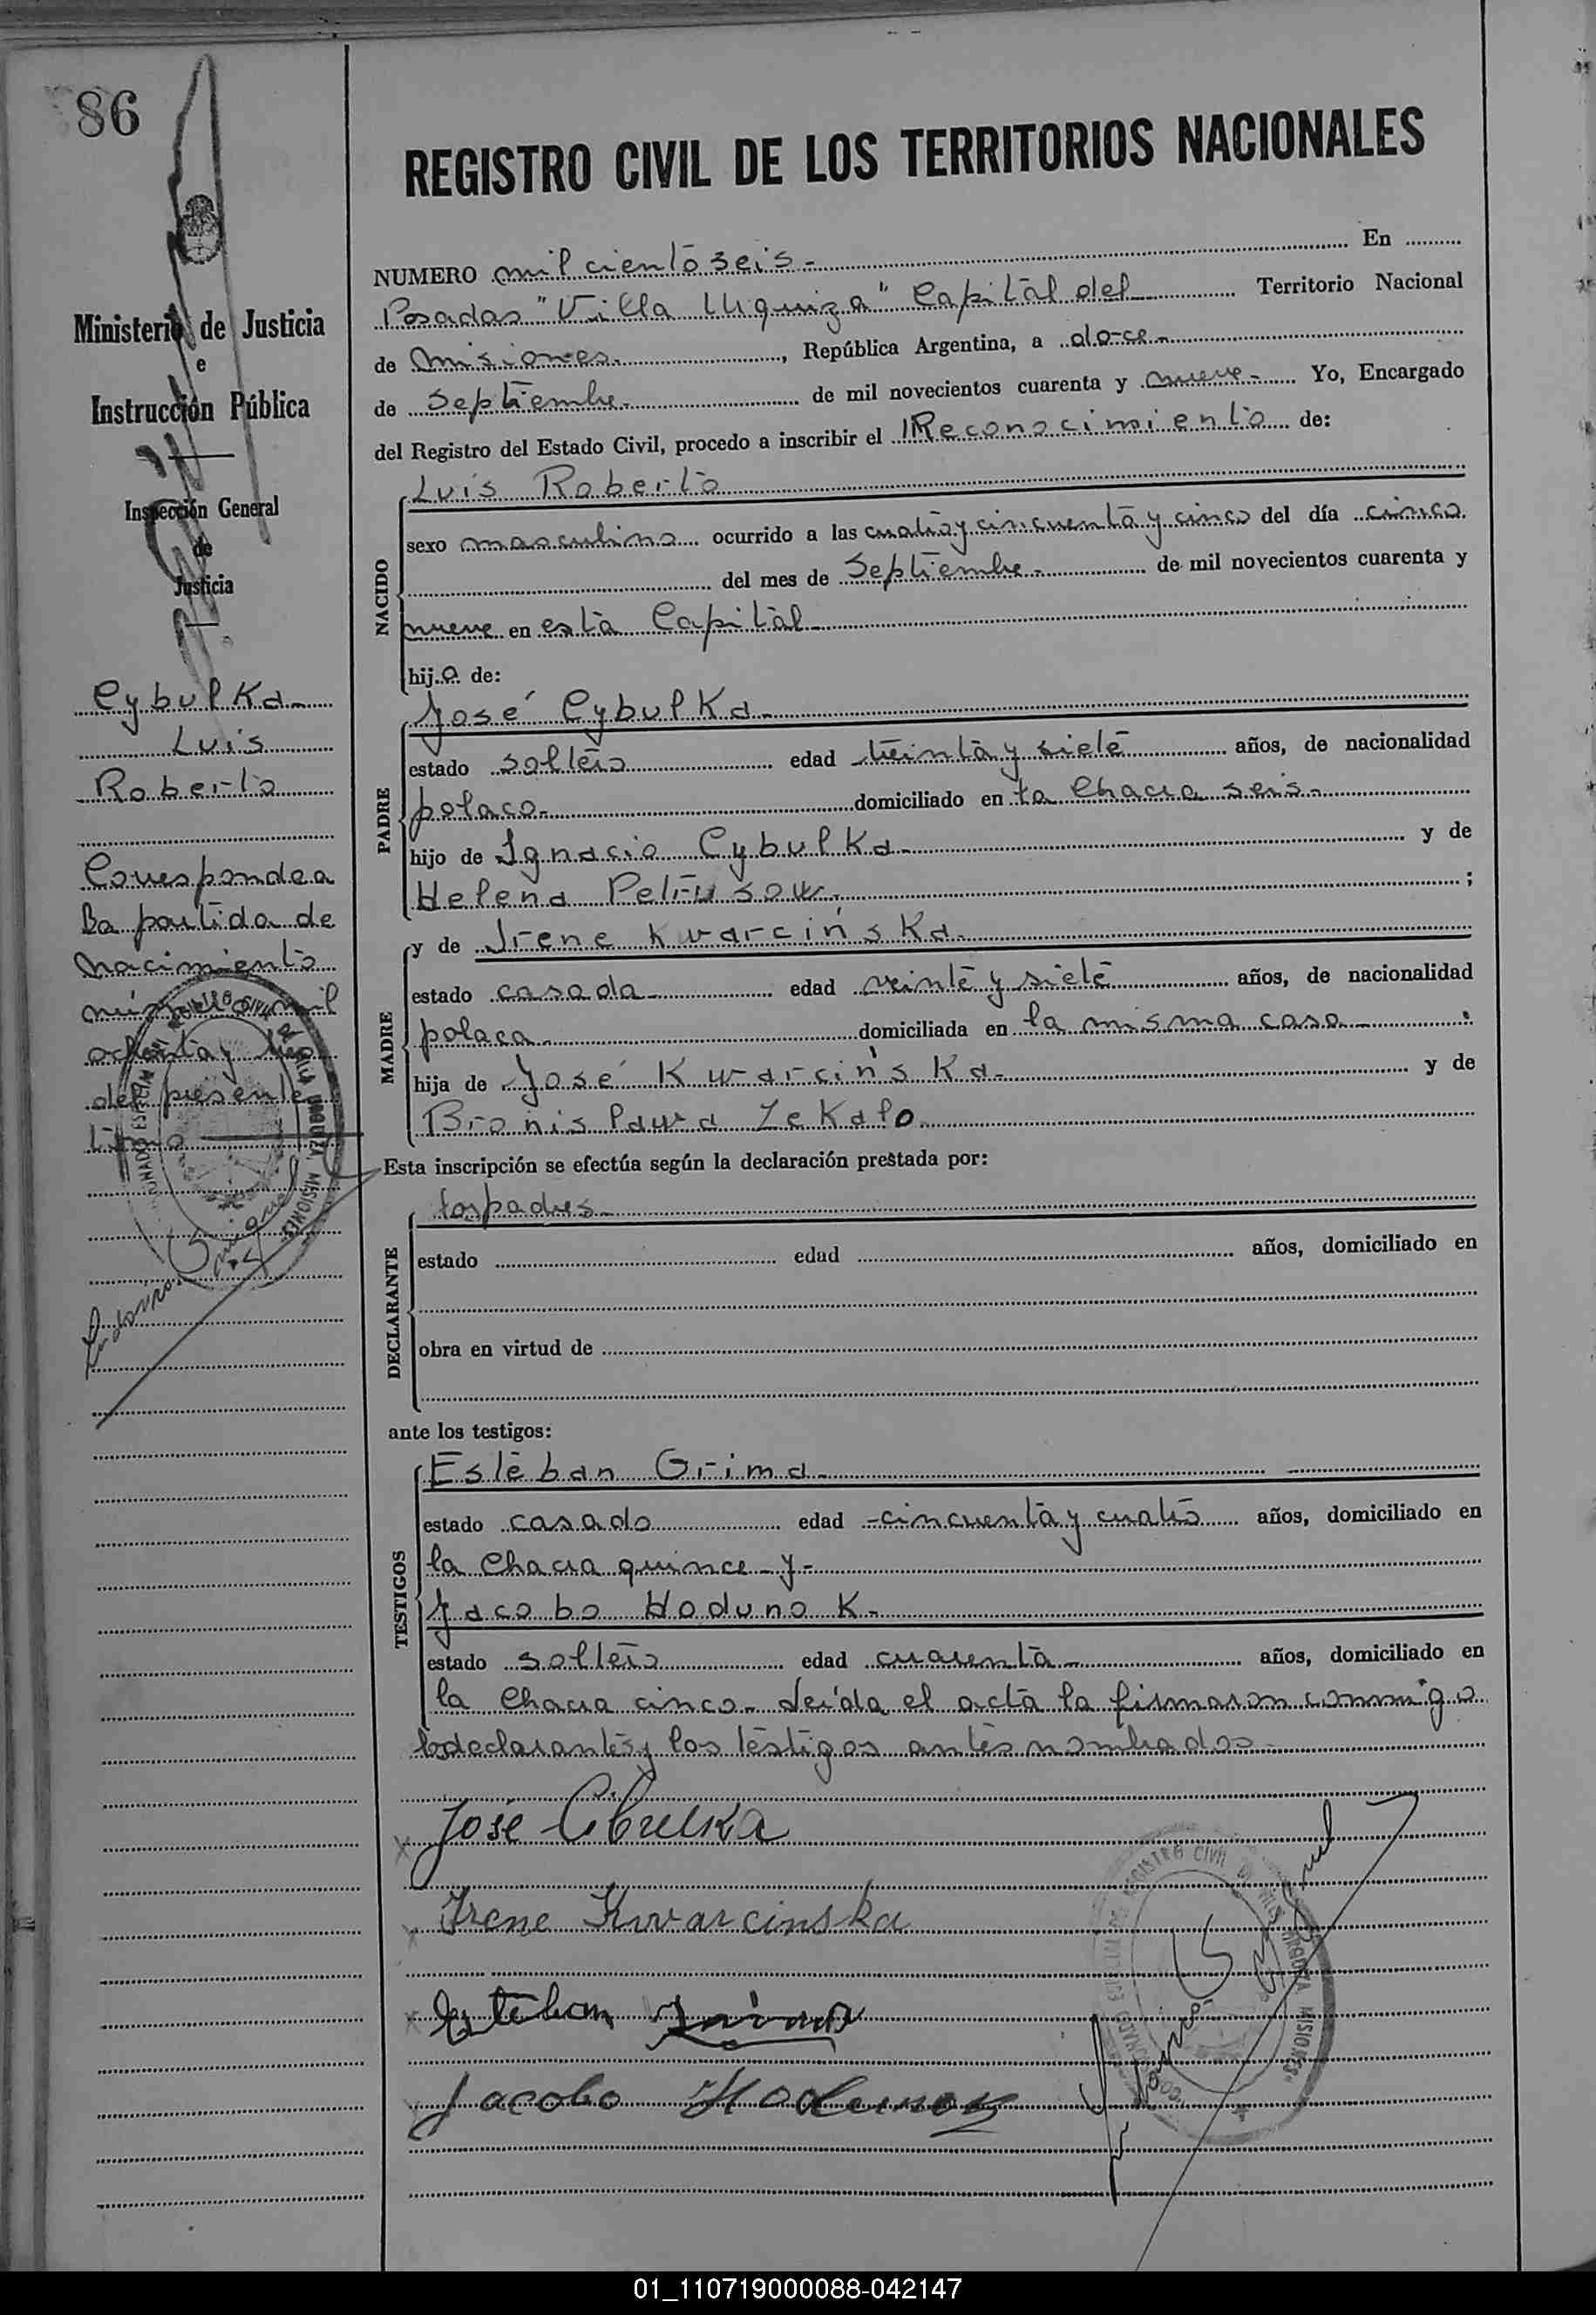 86
REGISTRO CIVIL DE LOS TERRITORIOS NACIONALES
Ministerio de Justicia
e
Instrucción Pública
Inspección General
de
Justicia
Cybulka
Luis
Roberto
Corresponde a
la partida de
nacimiento
mil
ochenta y
del presente
tomo
NUMERO mil ciento seis.- En
Posadas "Villa Urquiza" Capital del Territorio Nacional
de Misiones. , República Argentina, a doce.-
de Septiembre.- de mil novecientos cuarenta y nueve.- Yo, Encargado
del Registro del Estado Civil, procedo a inscribir el Reconocimiento de:
NACIDO
Luis Roberto
sexo masculino ocurrido a las cuatro y cincuenta y cinco del día cinco
del mes de Septiembre.- de mil novecientos cuarenta y
nueve en esta Capital
hijo de:
PADRE
José Cybulka
estado soltero edad treinta y siete años, de nacionalidad
polaco. domiciliado en la Chacra seis.-
hijo de Ignacio Cybulka y de
Helena ;
MADRE
y de Irene Kwarcińska
estado casada edad veinte y siete años, de nacionalidad
polaca domiciliada en la misma casa
hija de José Kwarcińska y de
Bronislawa Zekalo
Esta inscripción se efectúa según la declaración prestada por:
DECLARANTE
los padres
estado edad años, domiciliado en
obra en virtud de
ante los testigos:
TESTIGOS
Esteban Grima
estado casado edad cincuenta y cuatro años, domiciliado en
la Chacra quince y-
Jacobo Hodunok.
estado soltero edad cuarenta años, domiciliado en
la Chacra cinco. Leída el acta la firmaron conmigo
los declarantes y los testigos antes nombrados
José Cibulka
Irene Kwarcinska
Esteban Grima
Jacobo Hodunok
REGISTRO CIVIL
MISIONES
01_110719000088-042147